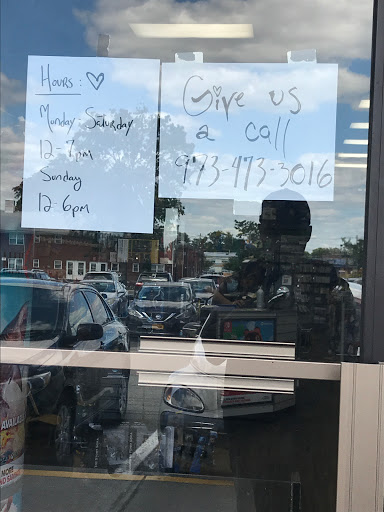 Hours: ♡
Munday-Saturday
12-7pm
Sunday
12-6pm
Give us
a call
973-473-3016
AVAILA
MORE